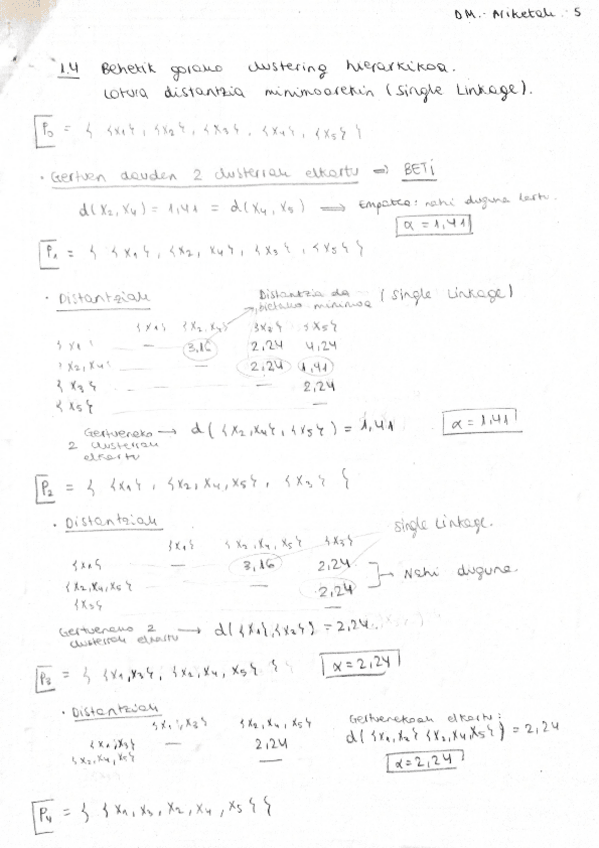 DM.- Niketak: 5
1.4 Behetik gorako clustering hierarkikoa.
Lotura distantzia minimoarekin (Single Linkage).
P0 = { {x1}, {x2}, {x3}, {x4}, {x5} }
• Gertuen dauden 2 clusterrak elkartu ⇒ BETI
d(x2, x4) = 1,41 = d(x4, x5) → Enpatea: nahi duguna hartu.
α = 1,41
P1 = { {x1}, {x2, x4}, {x3}, {x5} }
• Distantziak Distantzia da bietako minimoa (Single Linkage)
{x1} {x2, x4} {x3} {x5}
{x1} — 3,16 2,24 4,24
{x2, x4} — 2,24 1,41
{x3} — 2,24
{x5} —
Gertueneko 2 clusterrak elkartu → d({x2, x4}, {x5}) = 1,41 α = 1,41
P2 = { {x1}, {x2, x4, x5}, {x3} }
• Distantziak Single Linkage.
{x1} {x2, x4, x5} {x3}
{x1} — 3,16 2,24
{x2, x4, x5} — 2,24 Nahi duguna.
{x3} —
Gertueneko 2 clusterrak elkartu → d({x1}, {x3}) = 2,24
P3 = { {x1, x3}, {x2, x4, x5} } α = 2,24
• Distantziak
{x1, x3} {x2, x4, x5} Gertuenekoak elkartu:
{x1, x3} — 2,24 d({x1, x2} {x2, x4, x5}) = 2,24
{x2, x4, x5} — α = 2,24
P4 = { {x1, x3, x2, x4, x5} }